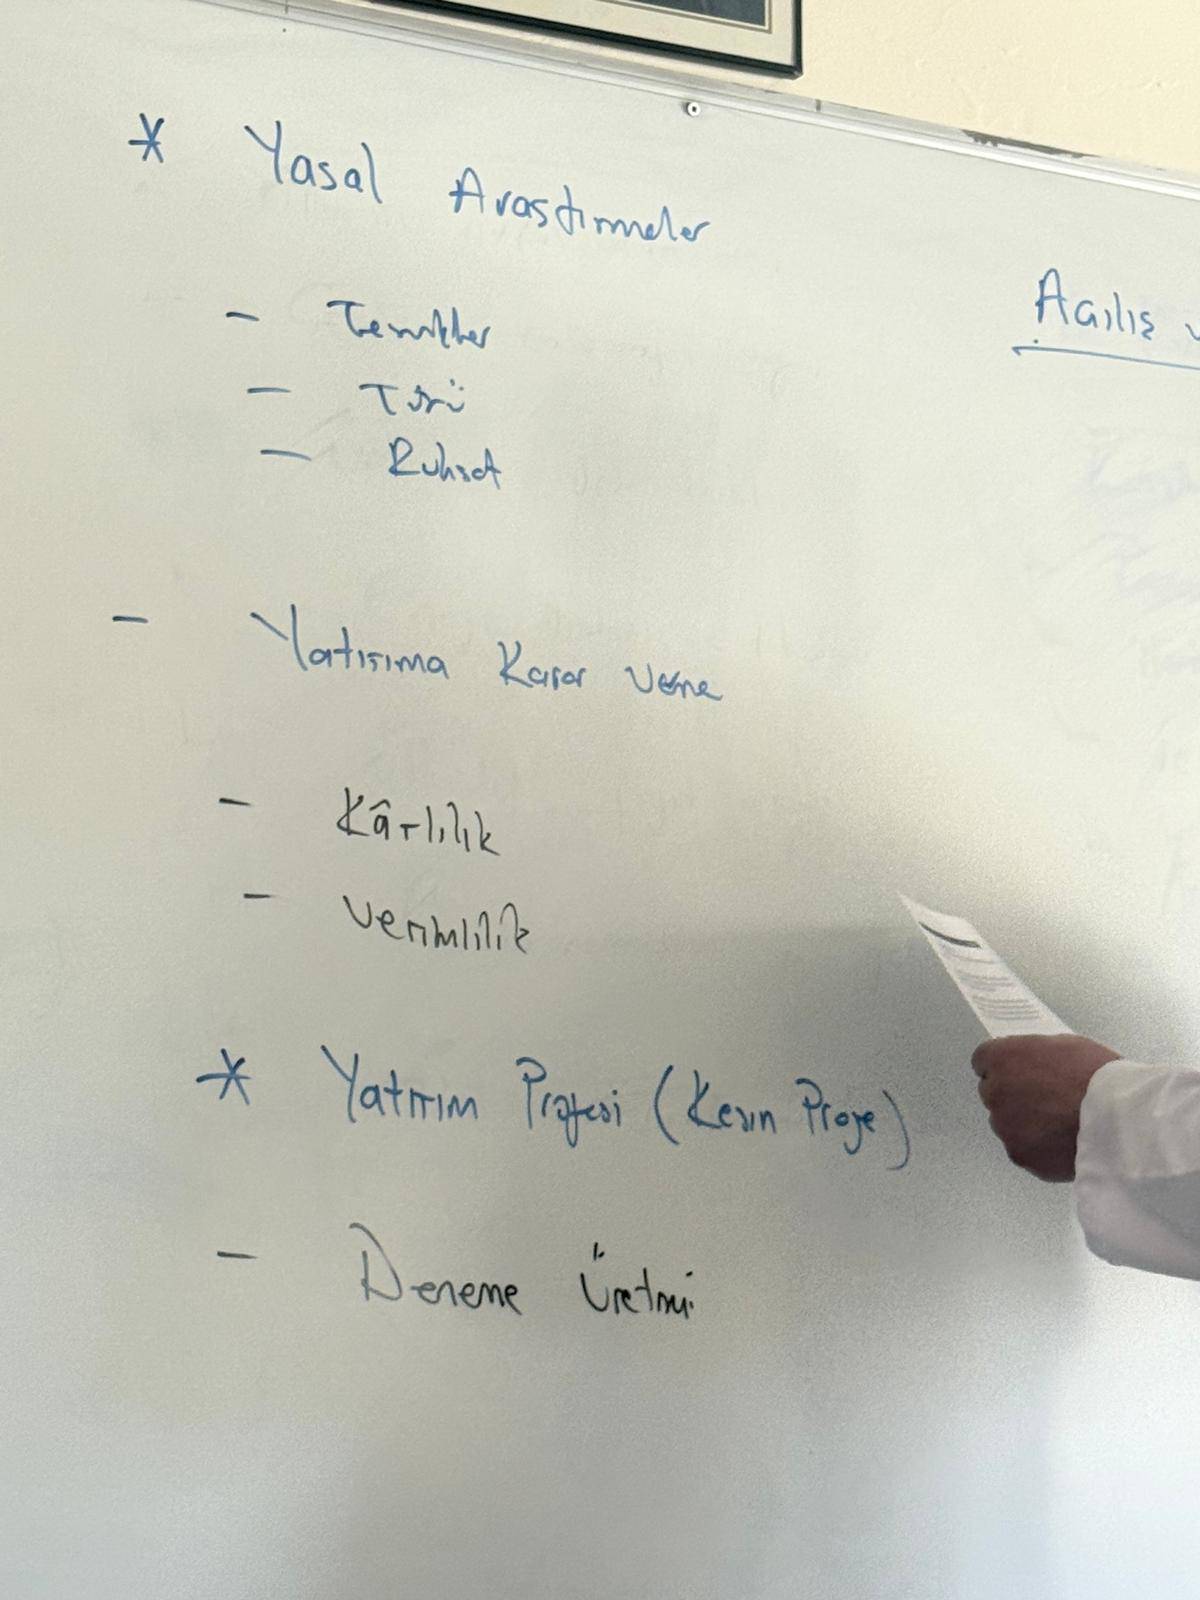 * Yasal Araştırmalar
- Teşvikler
- Türü
- Ruhsat
Açılış
- Yatırıma Karar Verme
- Kârlılık
- Verimlilik
* Yatırım Projesi (Kesin Proje)
- Deneme Üretimi